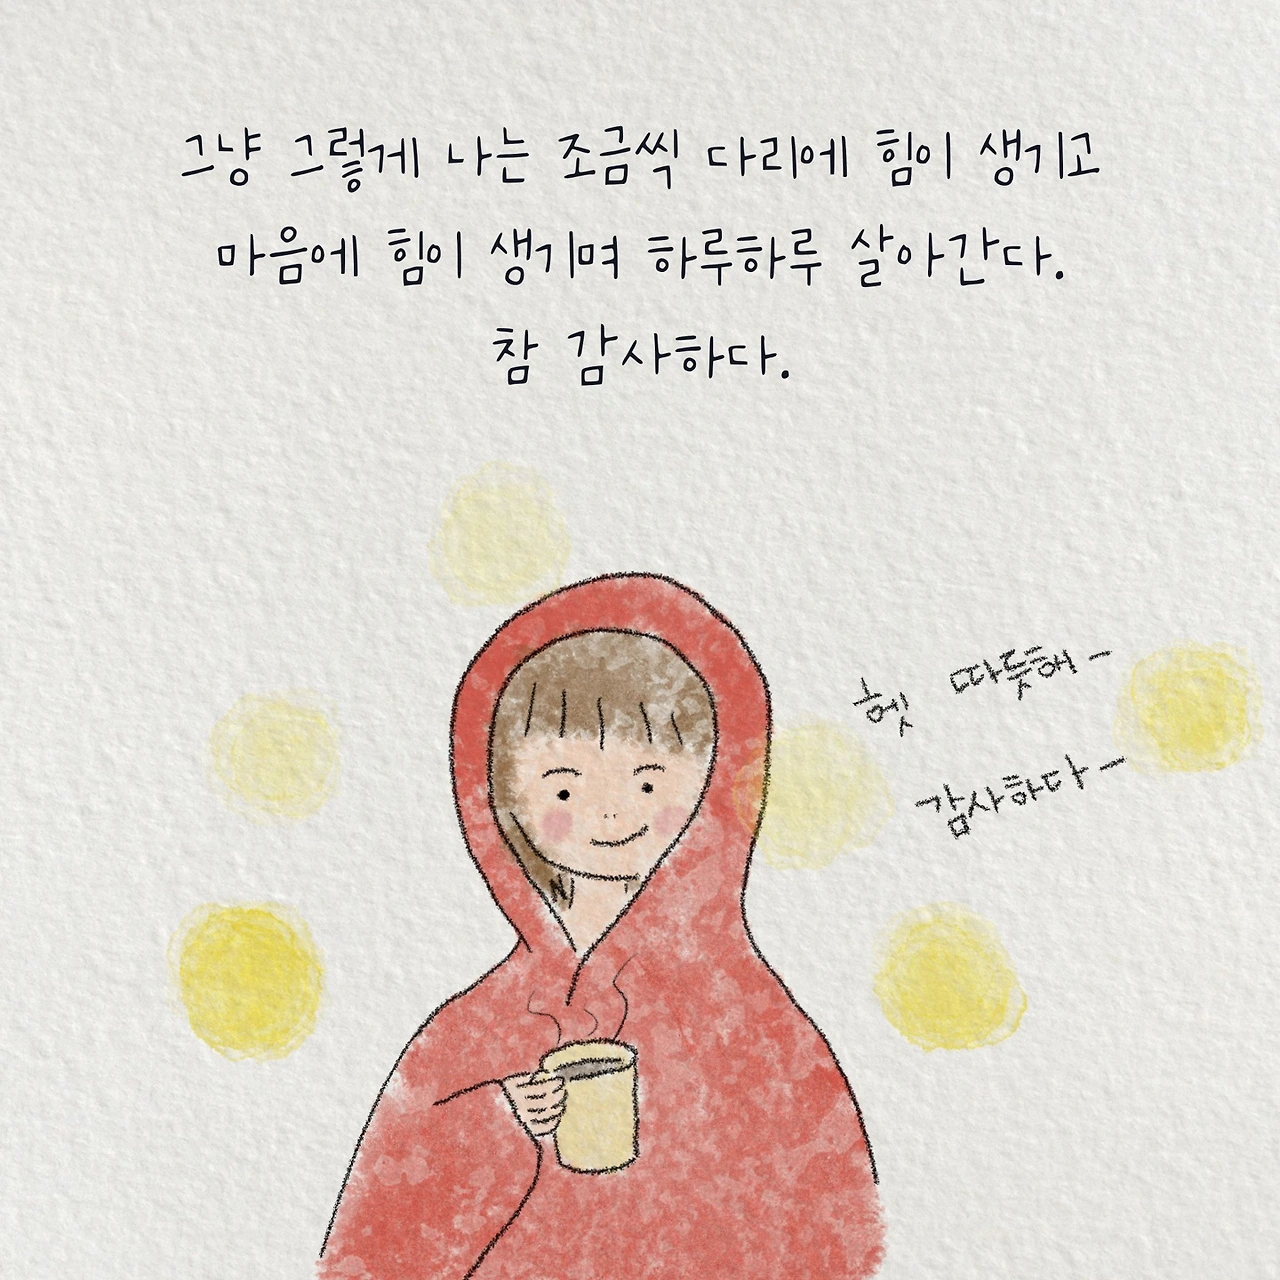 그냥 그렇게 나는 조금씩 다리에 힘이 생기고
마음에 힘이 생기며 하루하루 살아간다.
참 감사하다.
헷 따듯해-
감사하다-